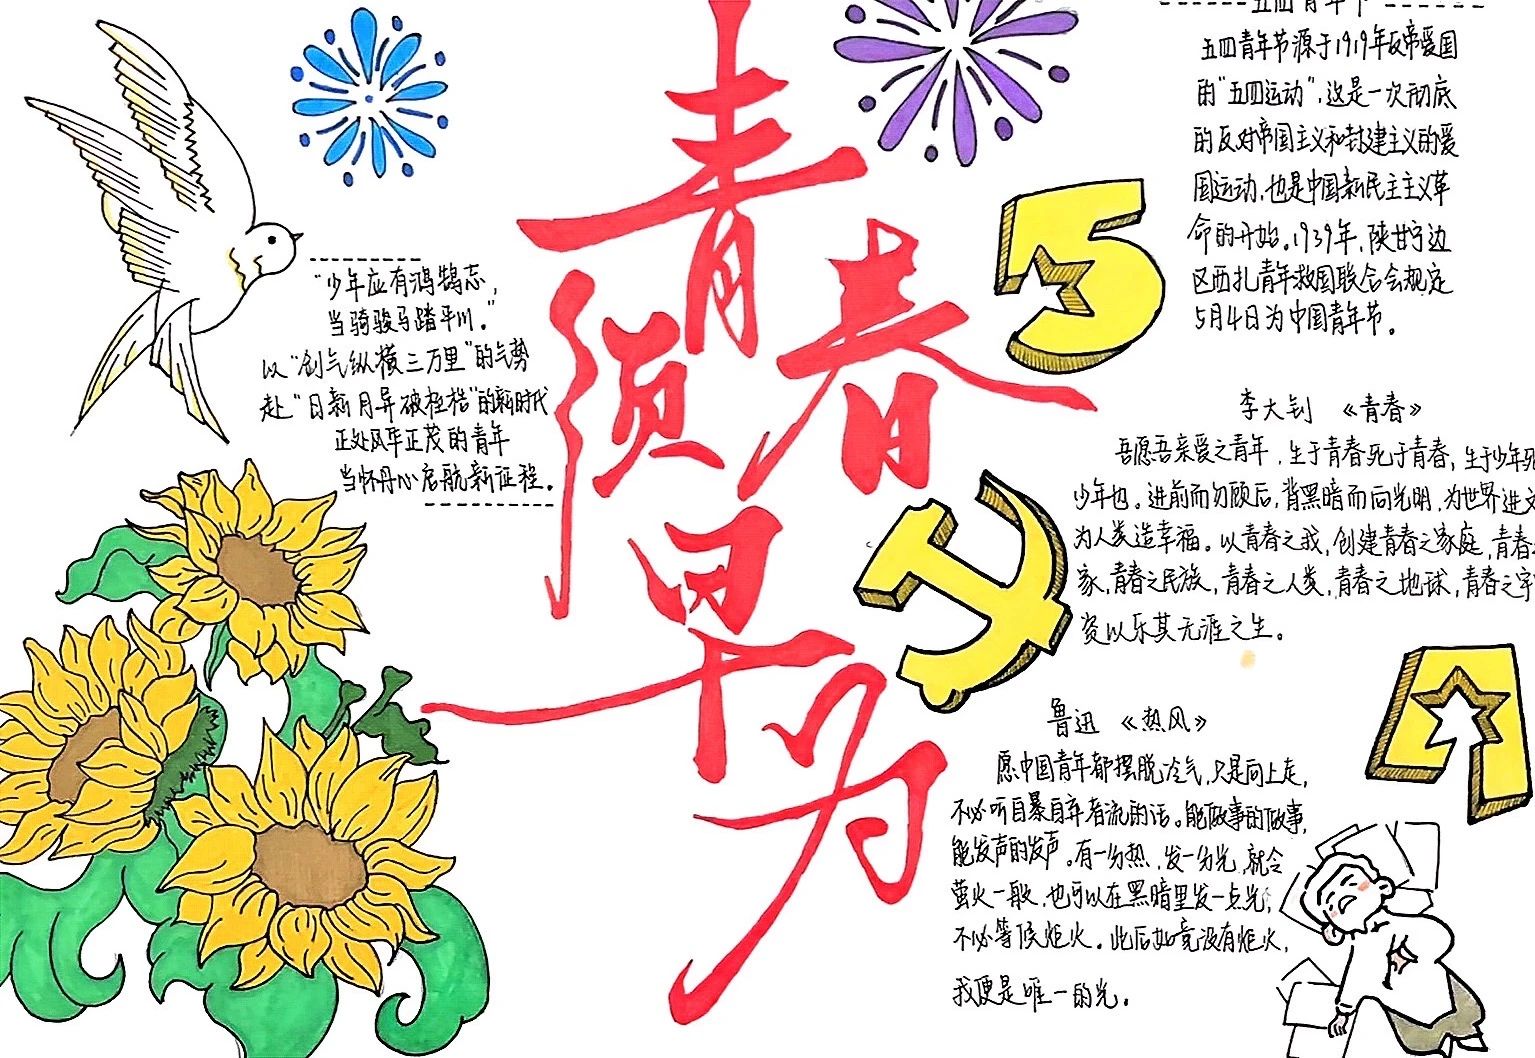 五四青年节
五四青年节源于1919年反帝爱国
的"五四运动",这是一次彻底
的反对帝国主义和封建主义的爱
国运动,也是中国新民主主义革
命的开始。1939年,陕甘宁边
区西北青年救国联合会规定
5月4日为中国青年节。
青春
须
早
为
5
4
"少年应有鸿鹄志,
当骑骏马踏平川。"
以"剑气纵横三万里"的气势
赴"日新月异破桎梏"的新时代
正处风华正茂的青年
当怀丹心启航新征程。
李大钊 《青春》
吾愿吾亲爱之青年,生于青春死于青春,生于少年死
少年也。进前而勿顾后,背黑暗而向光明,为世界进文
为人类造幸福。以青春之我,创建青春之家庭,青春
家,青春之民族,青春之人类,青春之地球,青春之宇
资以乐其无涯之生。
鲁迅 《热风》
愿中国青年都摆脱冷气,只是向上走,
不必听自暴自弃者流的话。能做事的做事,
能发声的发声。有一分热,发一分光,就令
萤火一般,也可以在黑暗里发一点光,
不必等候炬火。此后如竟没有炬火,
我便是唯一的光。